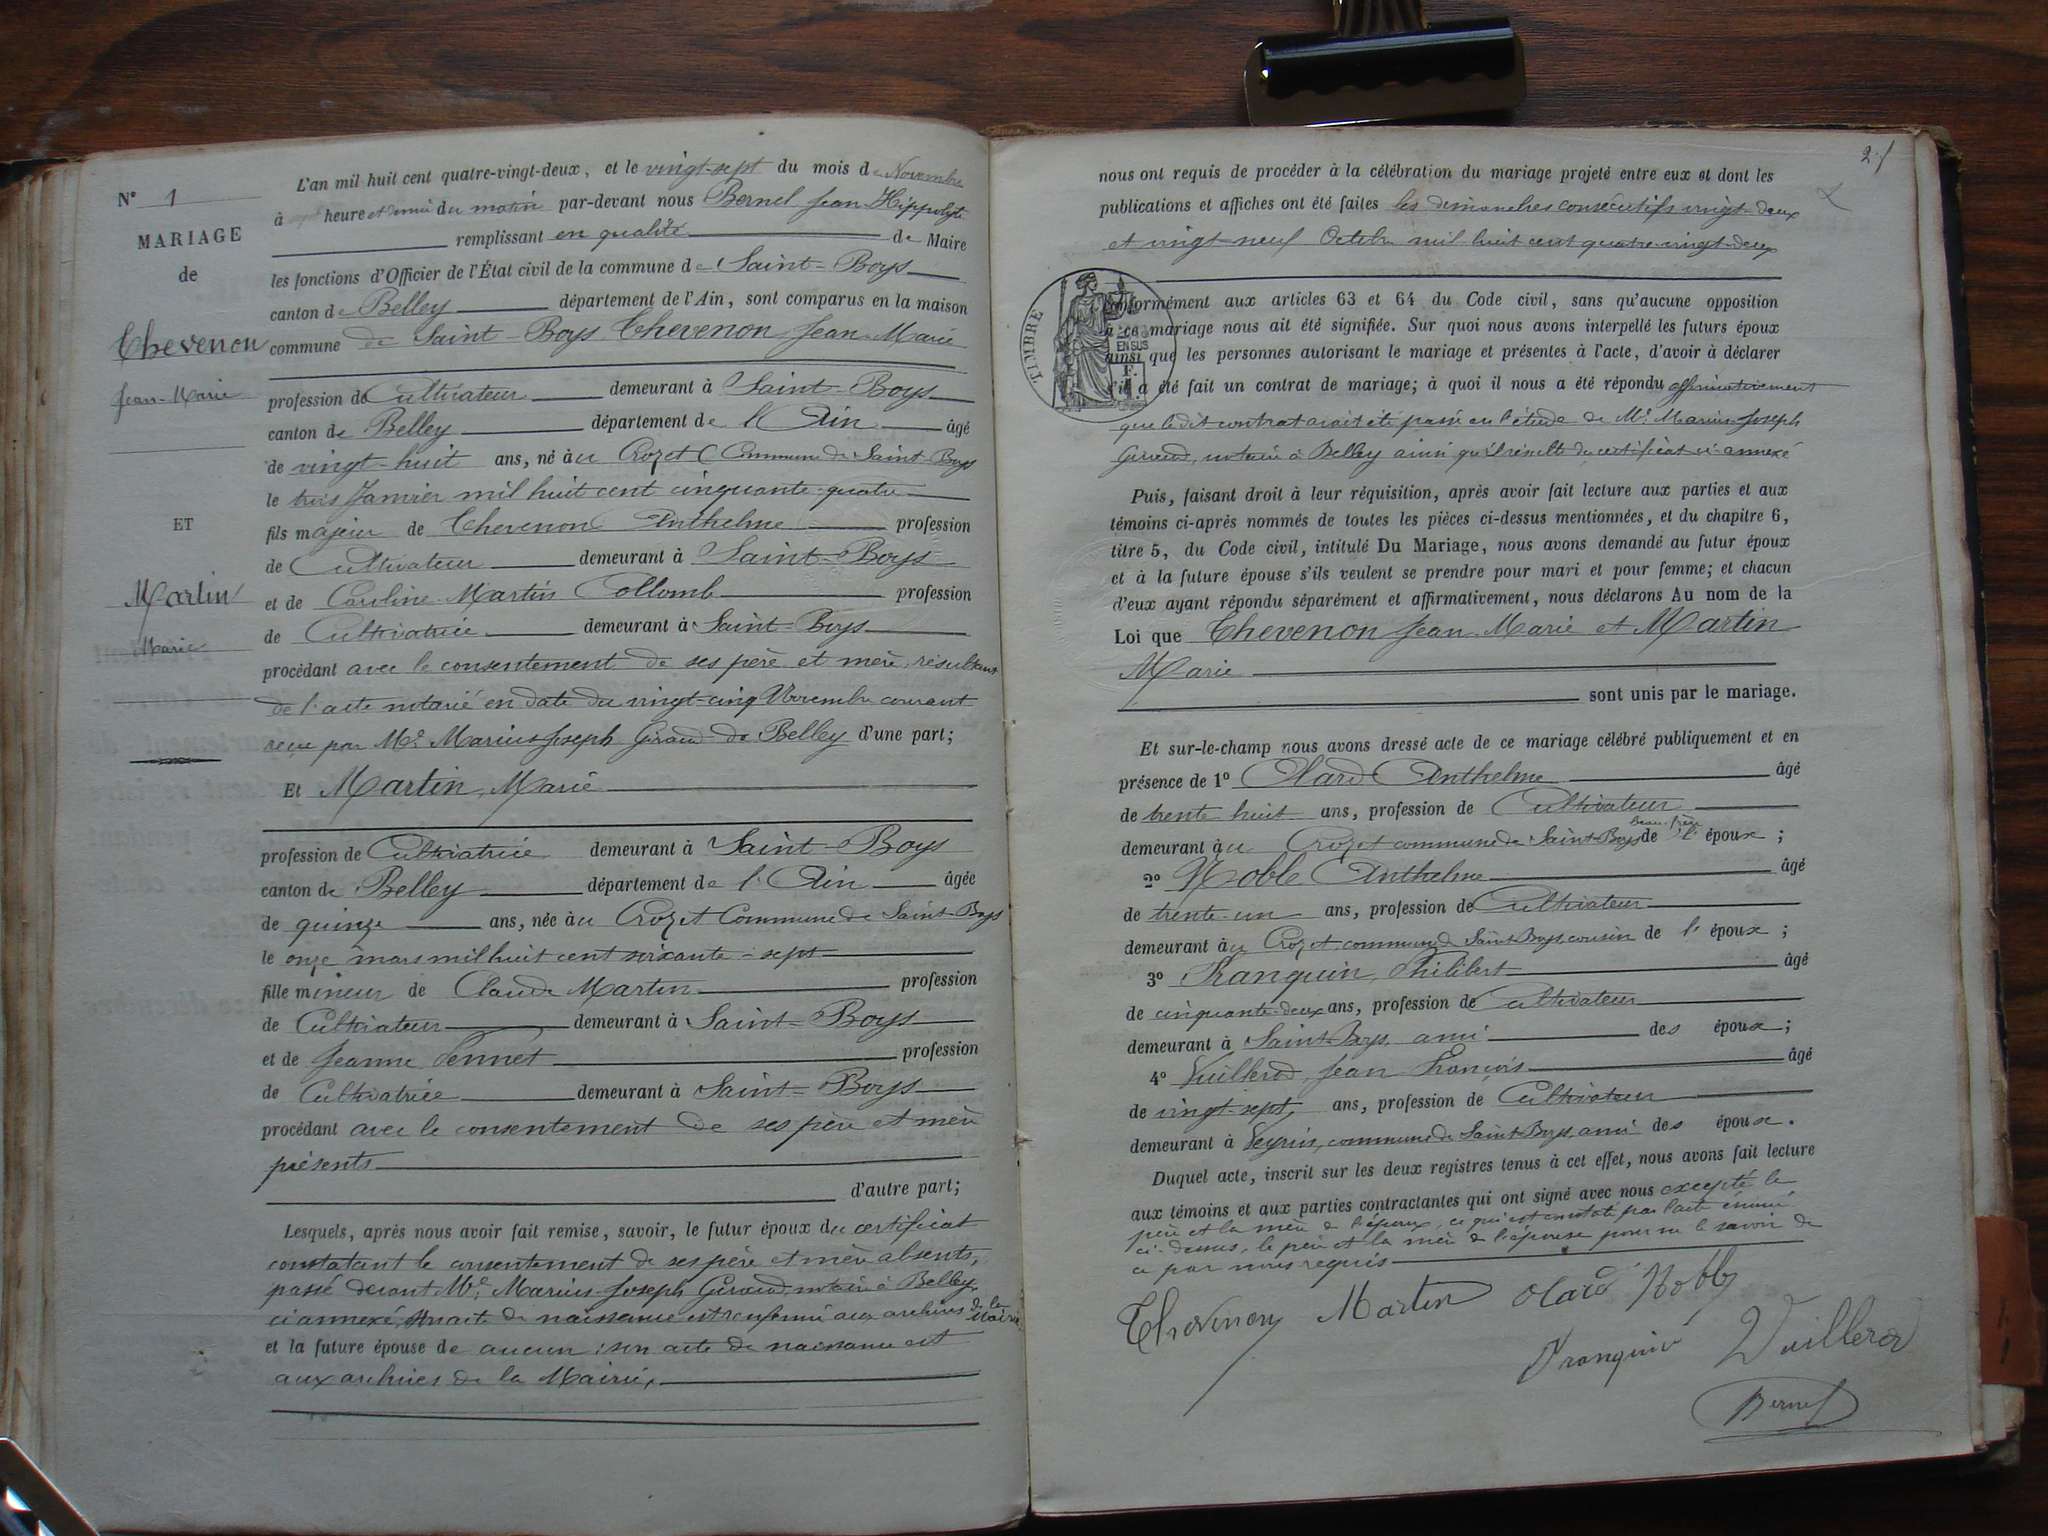 N° 1
MARIAGE
de
Thevenon
Jean-Marie
ET
Martin
Marie
L'an mil huit cent quatre-vingt-deux, et le vingt-sept du mois de Novembre
à heure et demie du matin par-devant nous Bernel Jean Hippolyte
remplissant en qualité de Maire
les fonctions d'Officier de l'État civil de la commune de Saint-Boys
canton de Belley département de l'Ain, sont comparus en la maison
commune de Saint-Boys Thevenon Jean-Marie
profession de Cultivateur demeurant à Saint-Boys
canton de Belley département de l'Ain âgé
de vingt-huit ans, né au Crozet Commune de Saint-Boys
le trois Janvier mil huit cent cinquante-quatre
fils majeur de Thevenon Anthelme profession
de Cultivateur demeurant à Saint-Boys
et de Caroline Martin Collomb profession
de Cultivatrice demeurant à Saint-Boys
procédant avec le consentement de ses père et mère résultant
de l'acte notarié en date du vingt-cinq Novembre courant
reçu par Me Marius Joseph Giraud de Belley d'une part;
Et Martin, Marie
profession de Cultivatrice demeurant à Saint-Boys
canton de Belley département de l'Ain âgée
de quinze ans, née au Crozet Commune de Saint-Boys
le onze mars mil huit cent soixante-sept
fille mineur de Claude Martin profession
de Cultivateur demeurant à Saint-Boys
et de Jeanne Pennet profession
de Cultivatrice demeurant à Saint-Boys
procédant avec le consentement de ses père et mère
présents
d'autre part;
Lesquels, après nous avoir fait remise, savoir, le futur époux du certificat
constatant le consentement de ses père et mère absents,
passé devant Me Marius-Joseph Giraud, notaire à Belley,
ci annexé, son acte de naissance est renfermé aux archives de la Mairie
et la future épouse de aucun; son acte de naissance est
aux archives de la Mairie,
2
nous ont requis de procéder à la célébration du mariage projeté entre eux et dont les
publications et affiches ont été faites les dimanches consécutifs vingt-deux
et vingt-neuf Octobre mil huit cent quatre-vingt-deux
TIMBRE
conformément aux articles 63 et 64 du Code civil, sans qu'aucune opposition
à ce mariage nous ait été signifiée. Sur quoi nous avons interpellé les futurs époux
ainsi que les personnes autorisant le mariage et présentes à l'acte, d'avoir à déclarer
s'il a été fait un contrat de mariage; à quoi il nous a été répondu affirmativement
que ledit contrat avait été passé en l'étude de Me Marius-Joseph
Giraud, notaire à Belley ainsi qu'il résulte du certificat ci-annexé
Puis, faisant droit à leur réquisition, après avoir fait lecture aux parties et aux
témoins ci-après nommés de toutes les pièces ci-dessus mentionnées, et du chapitre 6,
titre 5, du Code civil, intitulé Du Mariage, nous avons demandé au futur époux
et à la future épouse s'ils veulent se prendre pour mari et pour femme; et chacun
d'eux ayant répondu séparément et affirmativement, nous déclarons Au nom de la
Loi que Thevenon Jean-Marie et Martin
Marie
sont unis par le mariage.
Et sur-le-champ nous avons dressé acte de ce mariage célébré publiquement et en
présence de 1° Olard Anthelme âgé
de trente huit ans, profession de Cultivateur
demeurant au Crozet commune de Saint-Boys beau-frère de l'époux;
2° Noble Anthelme âgé
de trente-un ans, profession de Cultivateur
demeurant au Crozet, commune de Saint-Boys, cousin de l'époux;
3° Franquin Philibert âgé
de cinquante-deux ans, profession de Cultivateur
demeurant à Saint-Boys, ami des époux;
4° Vuillerod Jean François âgé
de vingt-sept, ans, profession de Cultivateur
demeurant à Veyrin, commune de Saint-Boys, ami des époux.
Duquel acte, inscrit sur les deux registres tenus à cet effet, nous avons fait lecture
aux témoins et aux parties contractantes qui ont signé avec nous excepté le
père et la mère de l'époux, ce qui est constaté par l'acte énoncé
ci-dessus, le père et la mère de l'épouse pour ne le savoir de
ce par nous requis
Thevenon Martin Olard Noble
Franquin Vuillerod
Bernel